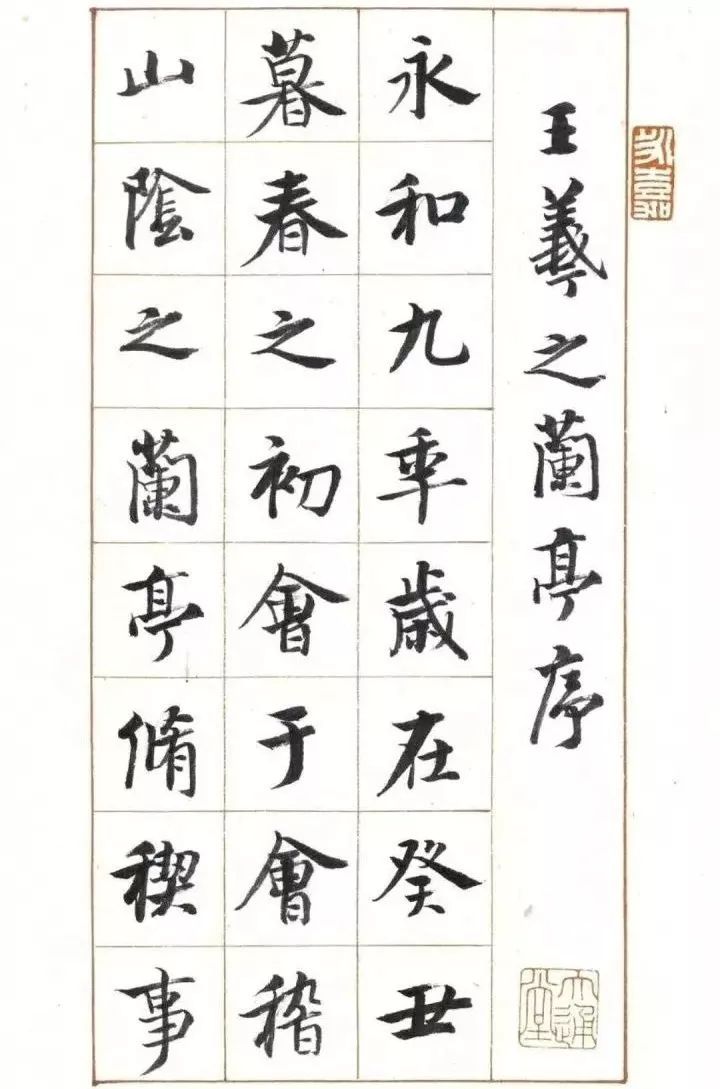 王羲之蘭亭序
永和九年歲在癸丑
暮春之初會于會稽
山陰之蘭亭脩禊事